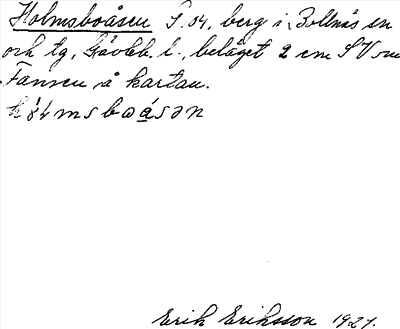 Holmsboåsen S. 04, berg i Bollnäs sn
och tg, Gävleb. l., beläget 2 cm SV om
Fansen å kartan.
Erik Eriksson 1927.